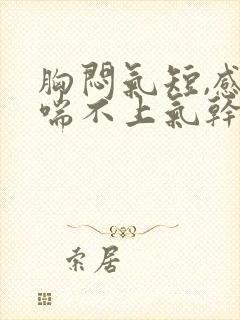 胸悶氣短,感
喘不上氣幹
索居